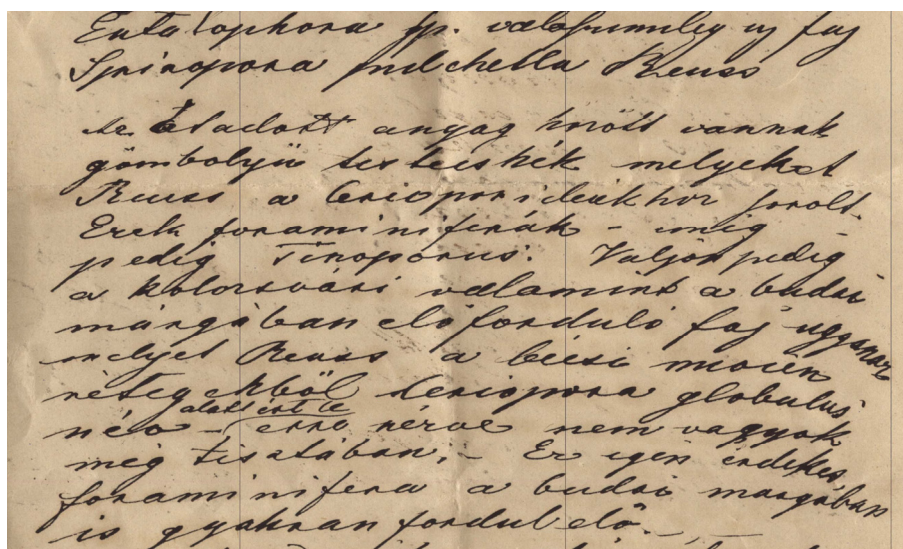 Entalophora sp. valószinüleg uj faj
Spiropora pulchella Reuss
Az átadott anyag közt vannak
gömbölyü testecskék melyeket
Reuss a Cerioporideákhoz sorolt.
Ezek foraminiferák – mig
pedig Tinoporus. Valjon pedig
a kolozsvári valamint a budai
márgában előforduló faj ugyanaz
melyet Reuss a bécsi miocén
rétegekből Ceriopora globulus
név alatt irt le – erre nézve nem vagyok
még tisztában. – Ez igen érdekes
foraminifera a budai márgában
is gyakran fordul elő. –